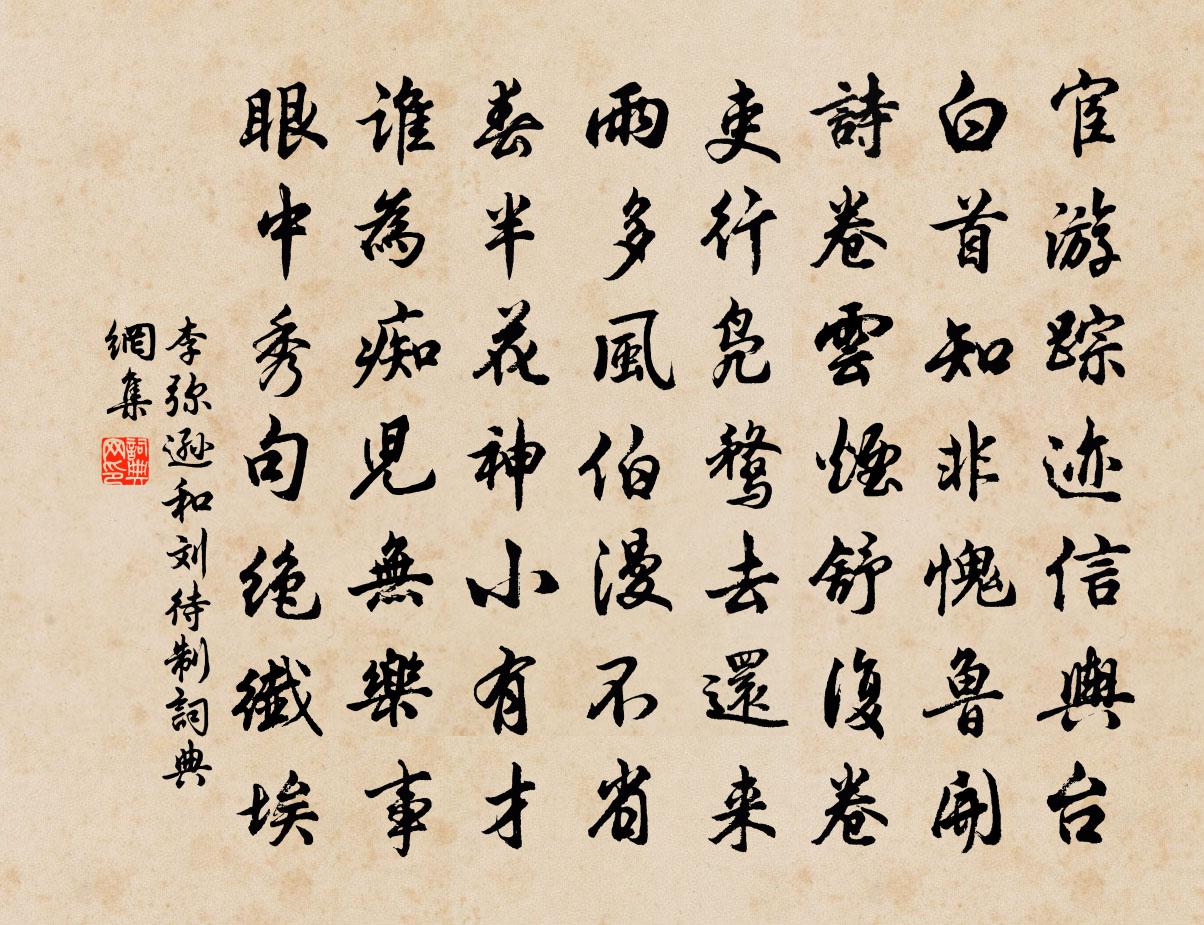 宦游踪迹信輿台
白首知非愧魯開
詩卷雲煙舒復卷
吏行鳧鶩去還来
雨多風伯漫不省
春半花神小有才
誰為痴兒無樂事
眼中秀句絶纖埃
李弥遜和刘待制詞典
網集
詞典
网印